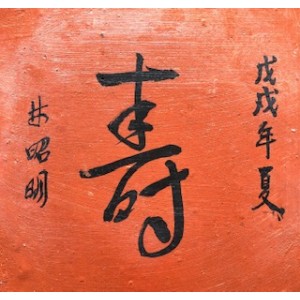 戊戌年夏
寿
林昭明